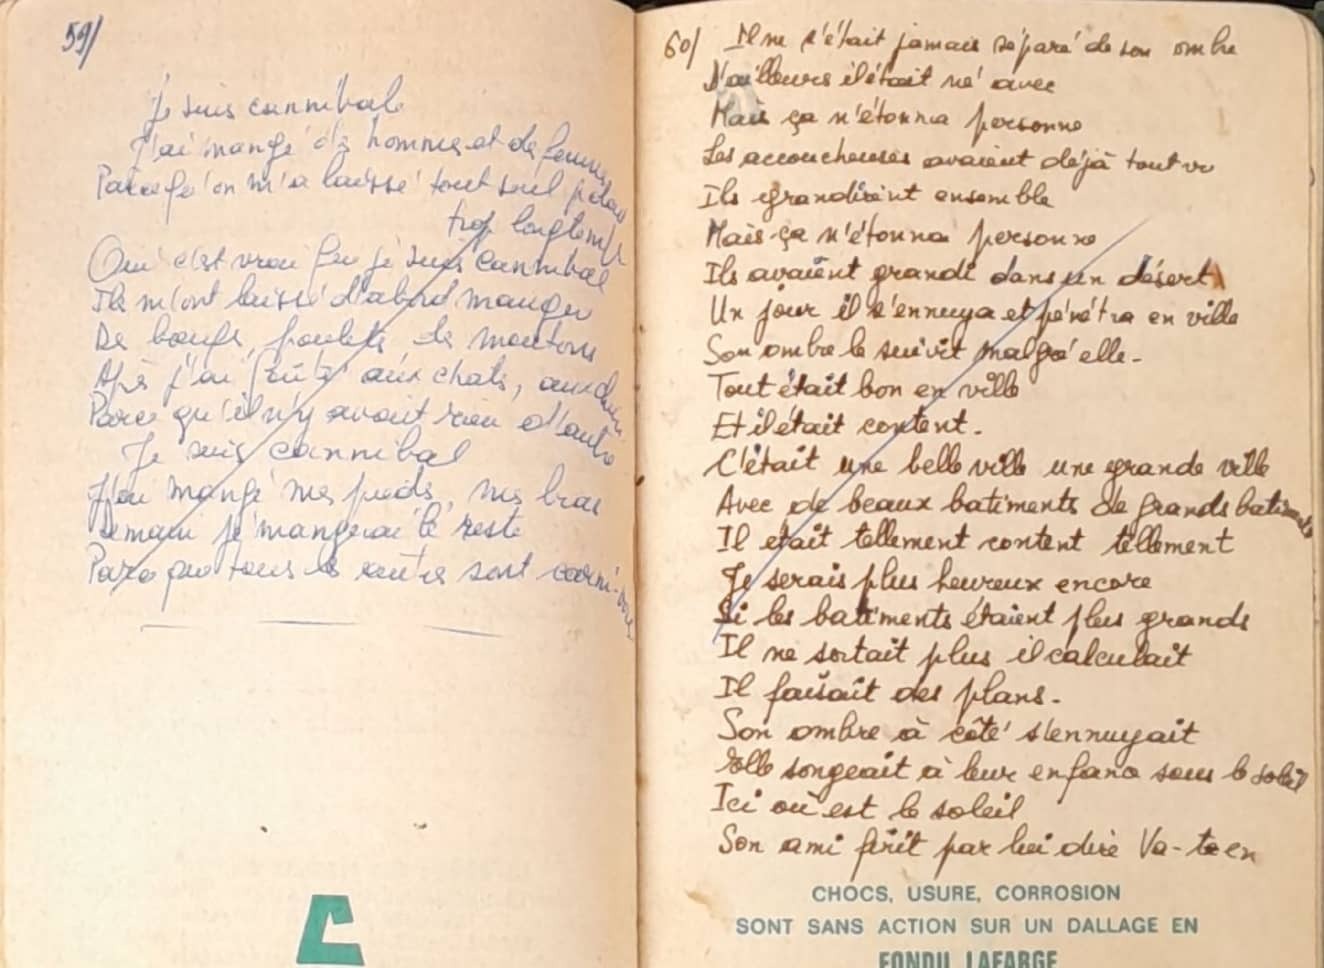 59/
Je suis cannibale
J'ai mangé des hommes et des femmes
Parce qu'on m'a laissé tout seul pendant
trop longtemps
Oui c'est vrai que je suis cannibal
Ils m'ont laissé d'abord manger
Des bœufs, poulets des moutons
Après j'ai goûté aux chats, aux chiens
Parce qu'il n'y avait rien d'autre
Je suis cannibal
J'ai mangé mes pieds, mes bras
Demain je mangerai le reste
Parce que tous les autres sont carni-vores
60/ Il ne s'était jamais séparé de son ombre
D'ailleurs il était né avec
Mais ça n'étonna personne
Les accoucheuses avaient déjà tout vu
Ils grandirent ensemble
Mais ça n'étonna personne
Ils avaient grandi dans un désert
Un jour il s'ennuya et pénétra en ville
Son ombre le suivit malgré elle.
Tout était bon en ville
Et il était content.
C'était une belle ville une grande ville
Avec de beaux batiments de grands batiments
Il était tellement content tellement
Je serais plus heureux encore
Si les batiments étaient plus grands
Il ne sortait plus il calculait
Il faisait des plans.
Son ombre à côté s'ennuyait
Elle songeait à leur enfance sous le soleil
Ici où est le soleil
Son ami finit par lui dire Va-te en
CHOCS, USURE, CORROSION
SONT SANS ACTION SUR UN DALLAGE EN
FONDU LAFARGE